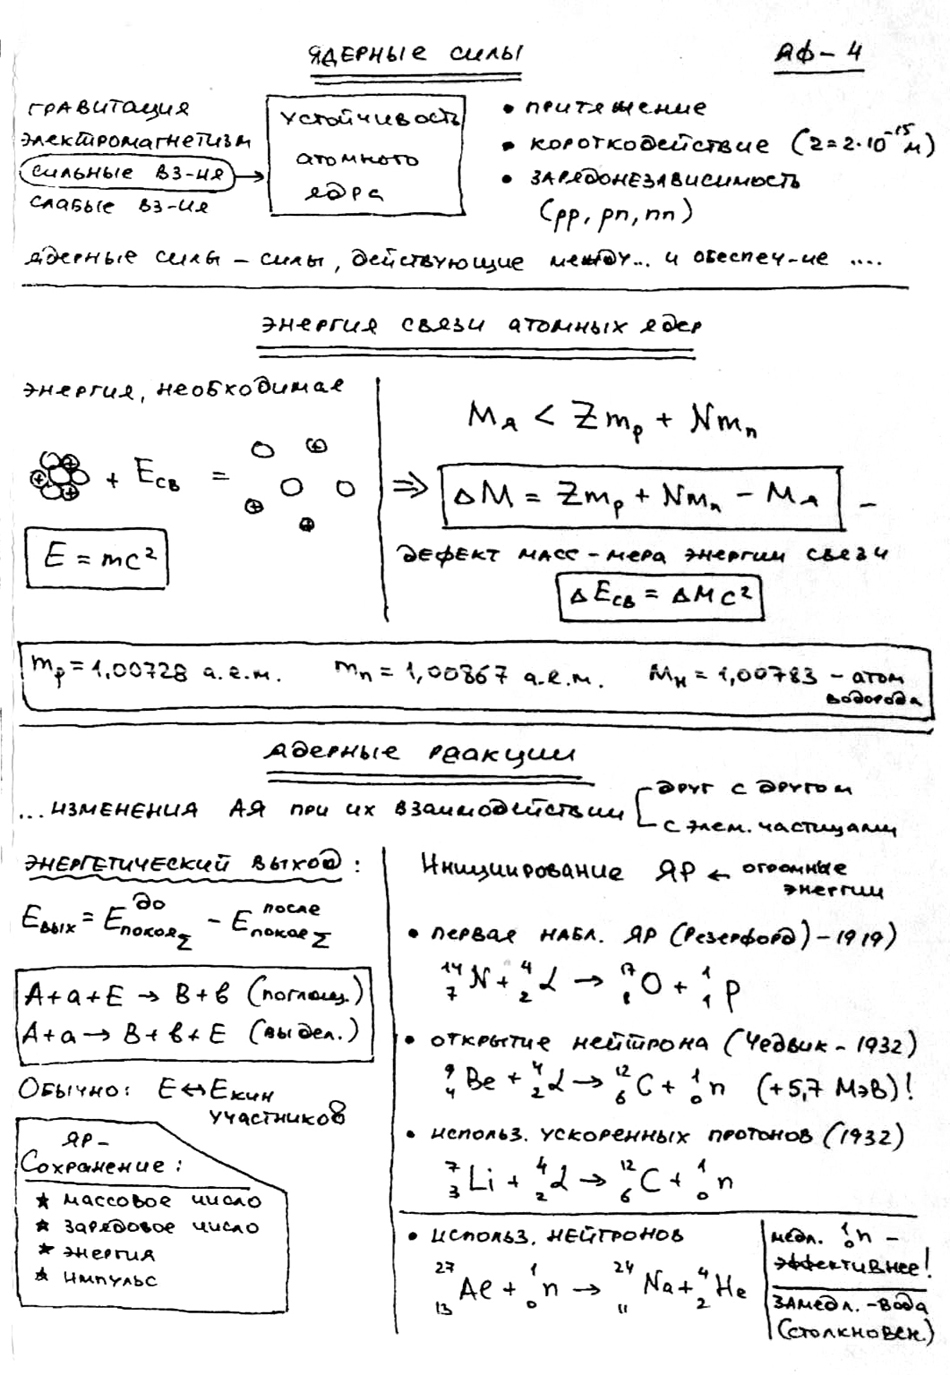 ЯДЕРНЫЕ СИЛЫ
ЯФ-4
ГРАВИТАЦИЯ
ЭЛЕКТРОМАГНЕТИЗМ
СИЛЬНЫЕ ВЗ-ИЯ
СЛАБЫЕ ВЗ-ИЯ
УСТОЙЧИВОСТЬ
АТОМНОГО
ЯДРА
• ПРИТЯЖЕНИЕ
• КОРОТКОДЕЙСТВИЕ (r=2·10⁻¹⁵ м)
• ЗАРЯДОНЕЗАВИСИМОСТЬ
(pp, pn, nn)
ЯДЕРНЫЕ СИЛЫ – СИЛЫ, ДЕЙСТВУЮЩИЕ МЕЖДУ... И ОБЕСПЕЧ-ИЕ ....
ЭНЕРГИЯ СВЯЗИ АТОМНЫХ ЯДЕР
ЭНЕРГИЯ, НЕОБХОДИМАЯ
+ Eсв =
E = mc²
Mя < Zmp + Nmn
⇒ ΔM = Zmp + Nmn – Mя –
ДЕФЕКТ МАСС – МЕРА ЭНЕРГИИ СВЯЗИ
ΔEсв = ΔMc²
mp = 1,00728 а.е.м. mn = 1,00867 а.е.м. MH = 1,00783 – атом
водорода
ЯДЕРНЫЕ РЕАКЦИИ
...ИЗМЕНЕНИЯ АЯ ПРИ ИХ ВЗАИМОДЕЙСТВИИ
ДРУГ С ДРУГОМ
С ЭЛЕМ. ЧАСТИЦАМИ
ЭНЕРГЕТИЧЕСКИЙ ВЫХОД:
Eвых = E до покоя Σ – E после покоя Σ
A + a + E → B + b (поглощ.)
A + a → B + b + E (выдел.)
ОБЫЧНО: E ↔ Eкин
УЧАСТНИКОВ
ЯР-
Сохранение:
★ МАССОВОЕ ЧИСЛО
★ ЗАРЯДОВОЕ ЧИСЛО
★ ЭНЕРГИЯ
★ ИМПУЛЬС
Инициирование ЯР ← ОГРОМНЫЕ
ЭНЕРГИИ
• ПЕРВАЯ НАБЛ. ЯР (Резерфорд) – 1919)
¹⁴₇N + ⁴₂α → ¹⁷₈O + ¹₁p
• ОТКРЫТИЕ НЕЙТРОНА (Чедвик – 1932)
⁹₄Be + ⁴₂α → ¹²₆C + ¹₀n (+5,7 МэВ)!
• ИСПОЛЬЗ. УСКОРЕННЫХ ПРОТОНОВ (1932)
⁷₃Li + ⁴₂α → ¹²₆C + ¹₀n
• ИСПОЛЬЗ. НЕЙТРОНОВ
²⁷₁₃Al + ¹₀n → ²⁴₁₁Na + ⁴₂He
МЕДЛ. ¹₀n –
ЭФФЕКТИВНЕЕ!
ЗАМЕДЛ. – ВОДА
(СТОЛКНОВЕН.)